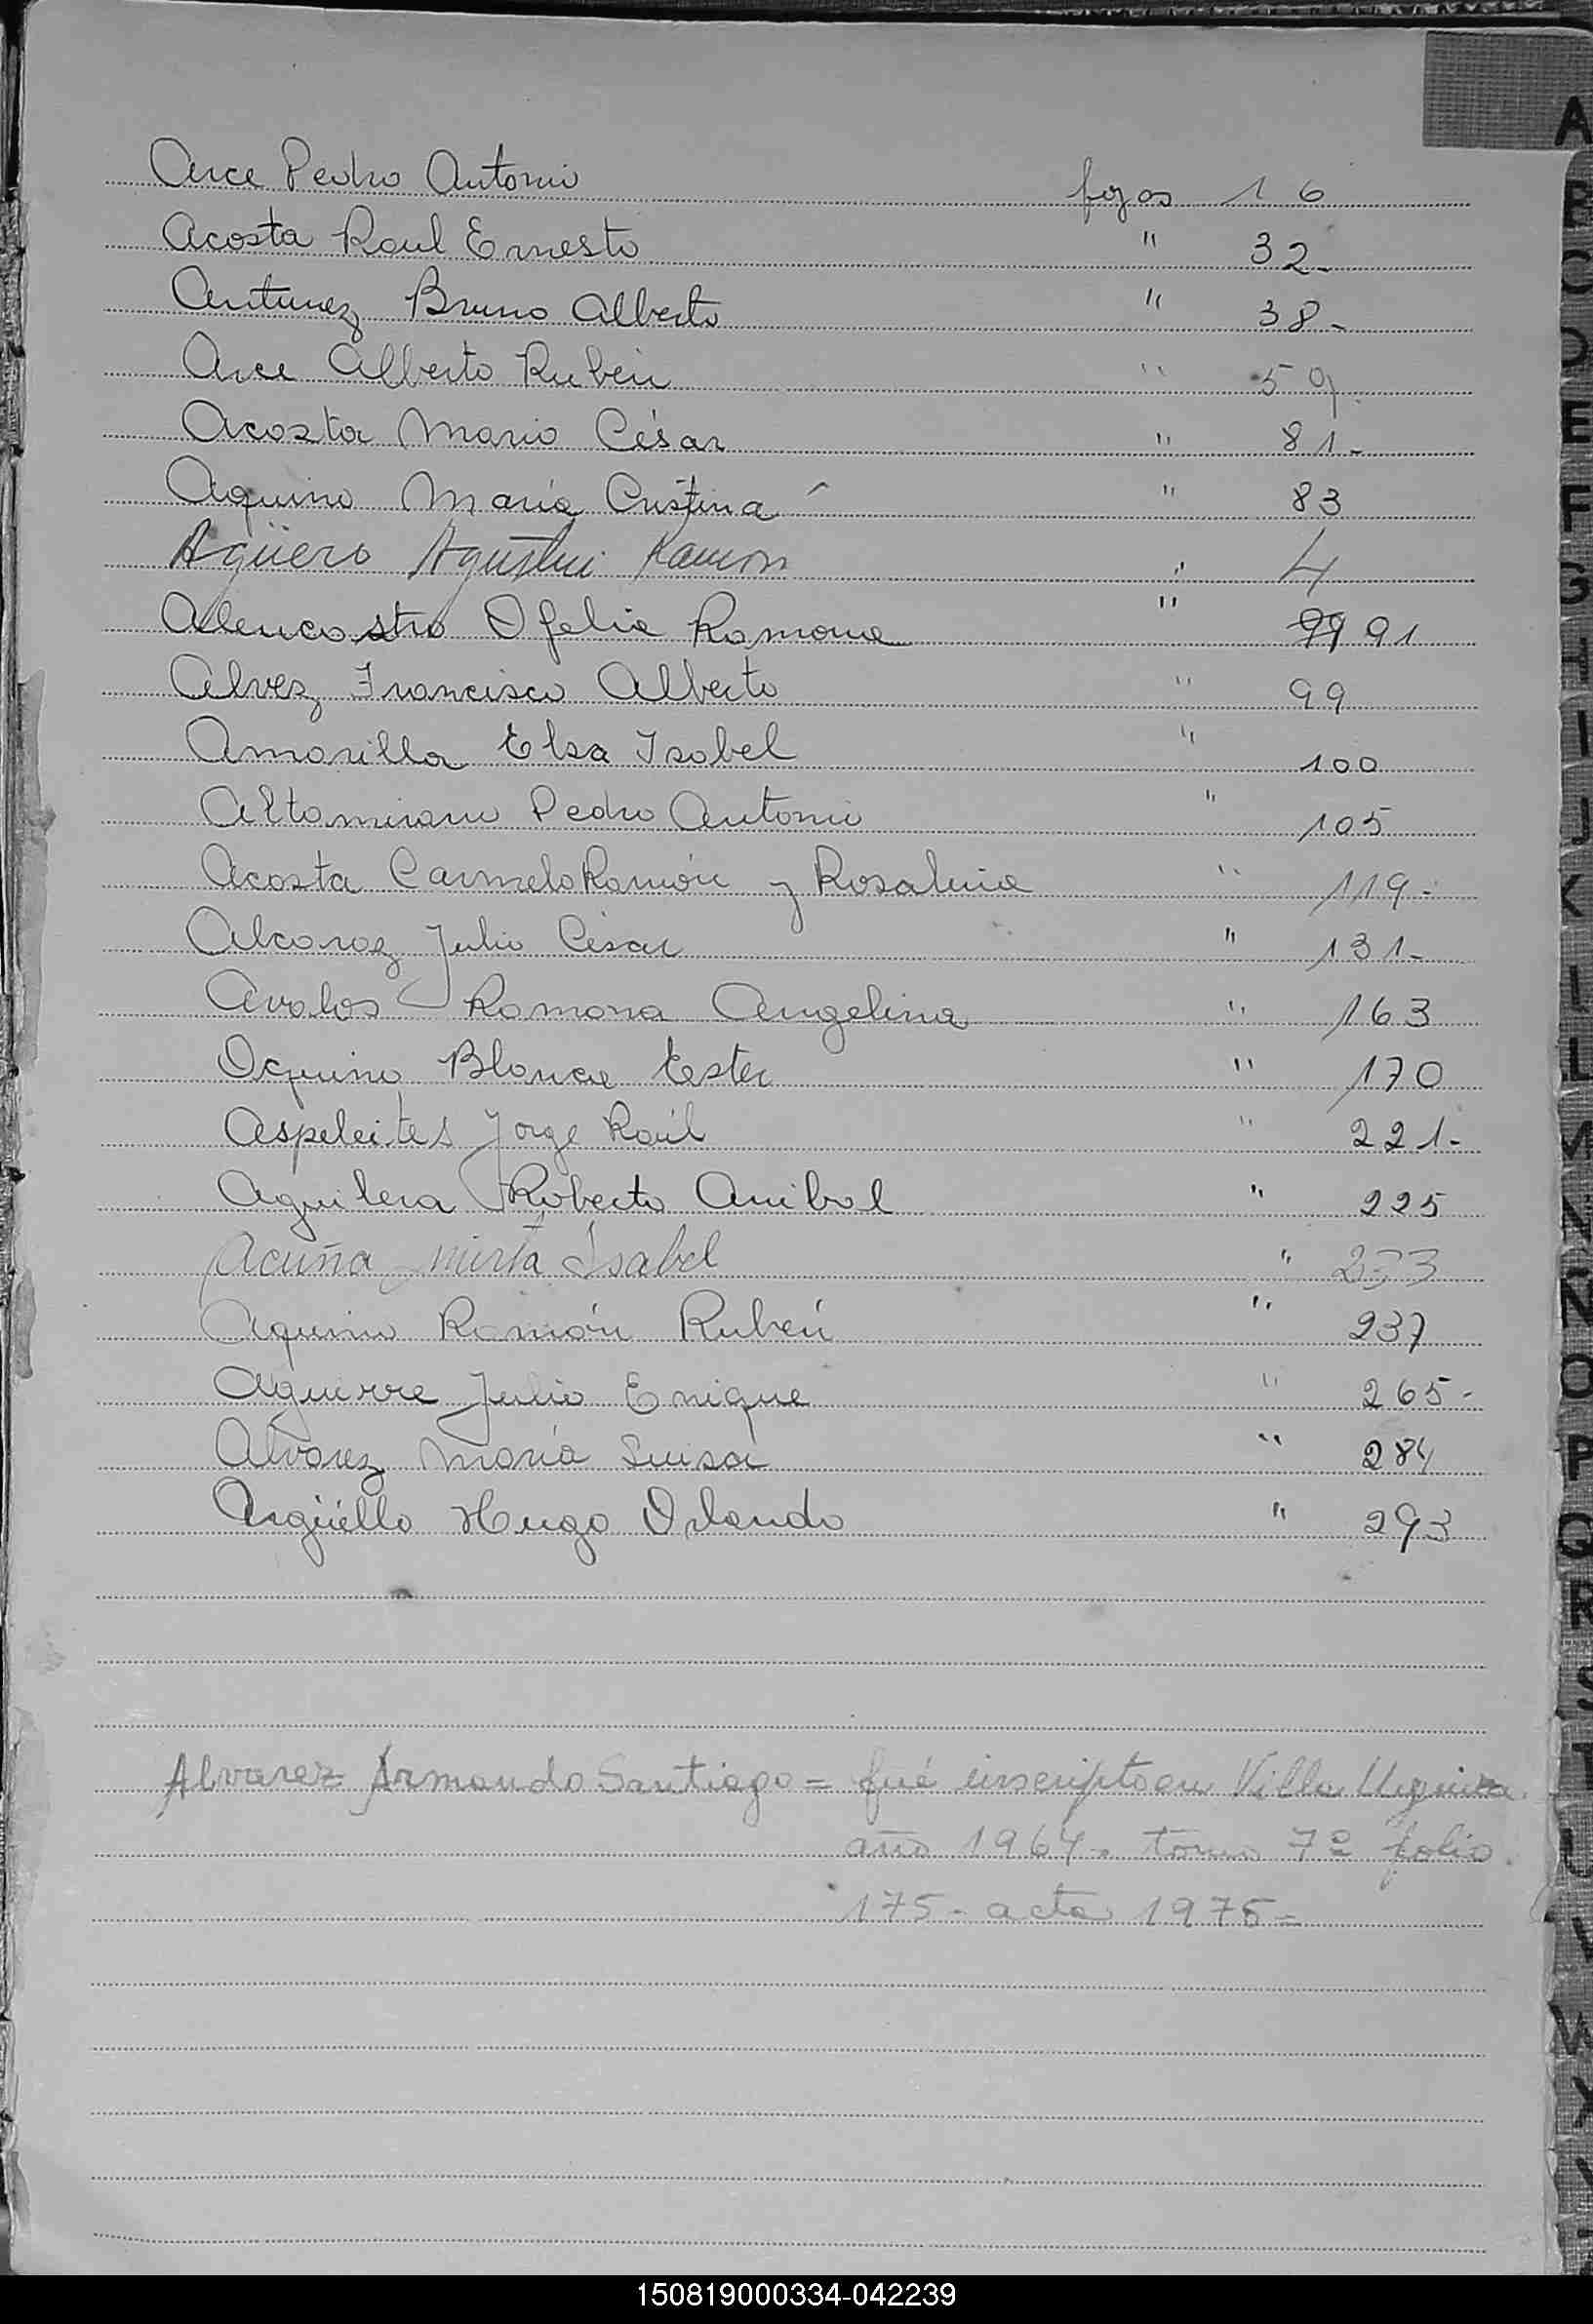 Arce Pedro Antonio fojas 16
Acosta Raul Ernesto " 32-
Antunez Bruno Alberto " 38-
Arce Alberto Rubén " 59.
Acosta Mario César " 81-
Aquino María Cristina " 83
Agüero Agustin Ramon " 4
Alencastro Ofelia Ramona " 99 91
Alvez Francisco Alberto " 99
Amarilla Elsa Isabel " 100
Altamirano Pedro Antonio " 105
Acosta Carmelo Ramón y Rosalina " 119-
Alcaraz Julio César " 131-
Avalos Ramona Angelina " 163
Aquino Blanca Ester " 170
Aspeleites Jorge Raúl " 221-
Aguilera Roberto Anibal " 225
Acuña Mirta Isabel " 233
Aquino Ramón Rubén " 237
Aguirre Julio Enrique " 265-
Alvarez María Luisa " 284
Argüello Hugo Orlando " 293
Alvarez Armando Santiago = fué inscripto en Villa
año 1964. tomo 7º folio
175- acta 1975=
A
B
C
D
E
F
G
H
I
J
K
L
L
M
N
Ñ
O
P
Q
R
S
T
U
V
W
X
150819000334-042239